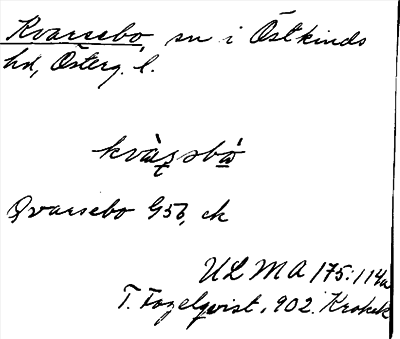 Kvarsebo, sn i Östkinds
hd, Österg. l.
kvàr̥sbȯ̲
Qvarsebo GSB, ek
ULMA 175:114a
T. Fogelqvist, 902. Krokek